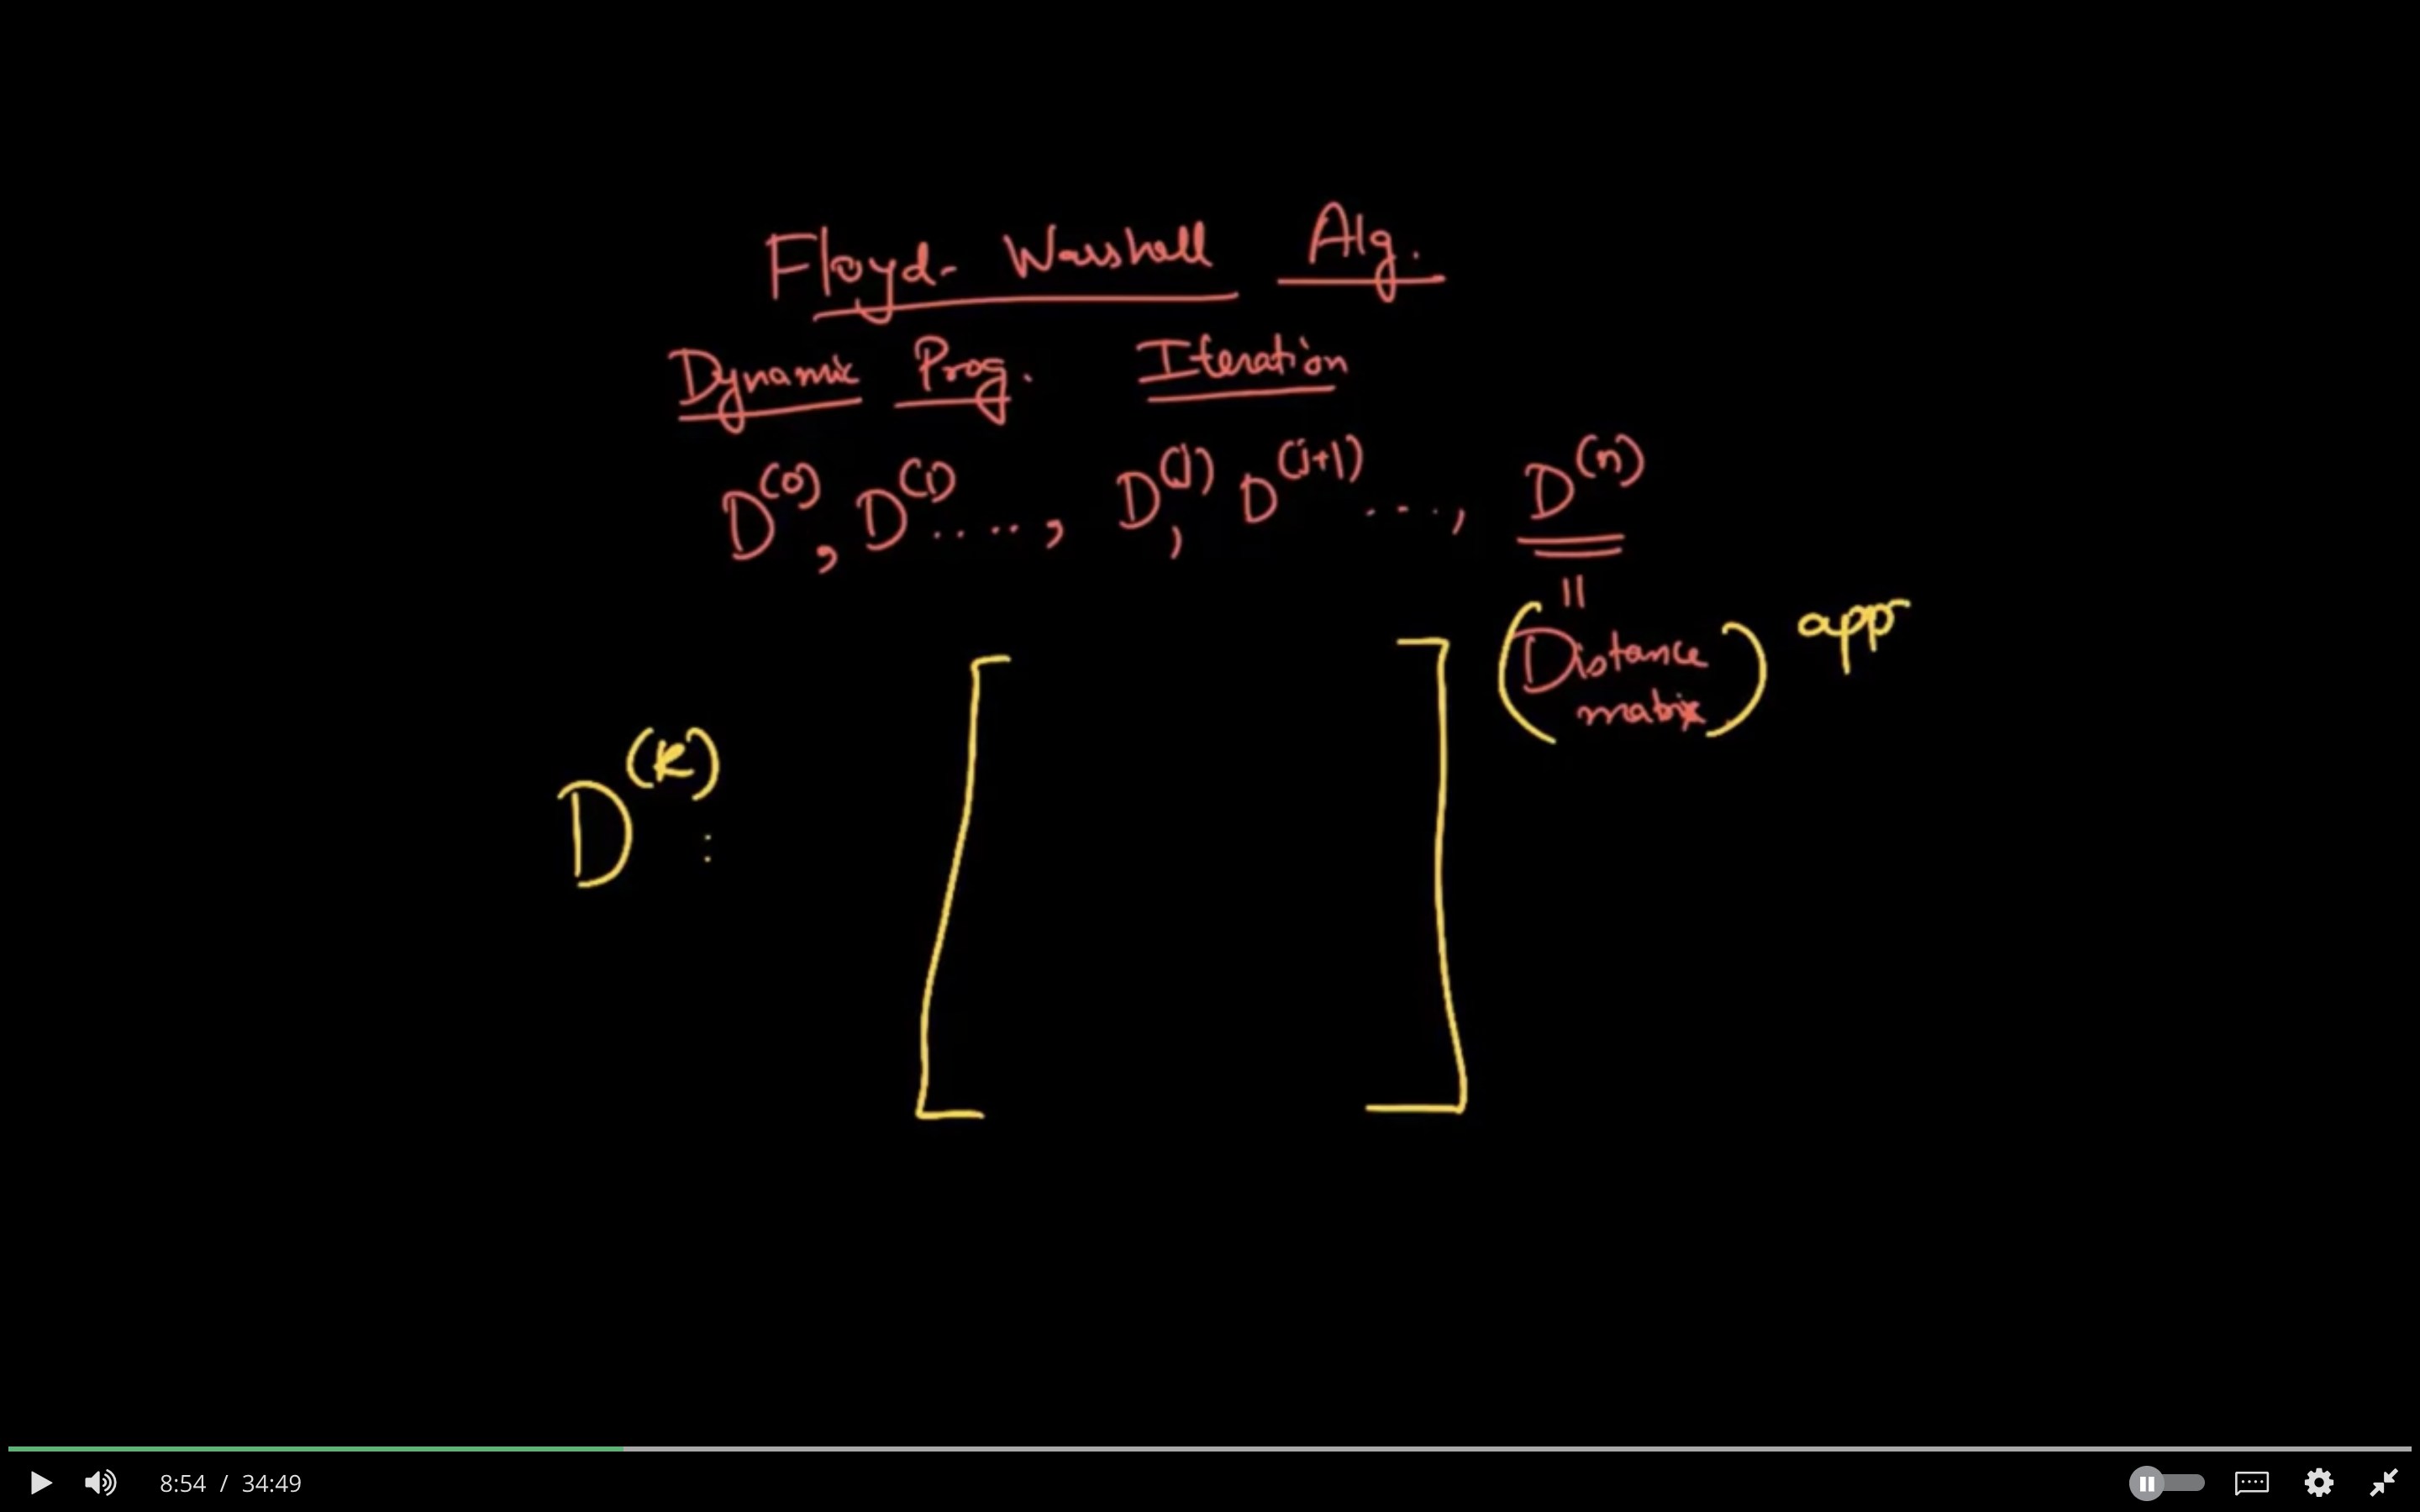 Floyd-Warshall Alg.
Dynamic Prog. Iteration
D^(0), D^(1)...., D^(j), D^(j+1)...., D^(n)
=
(Distance matrix) app
D^(k) :
8:54 / 34:49